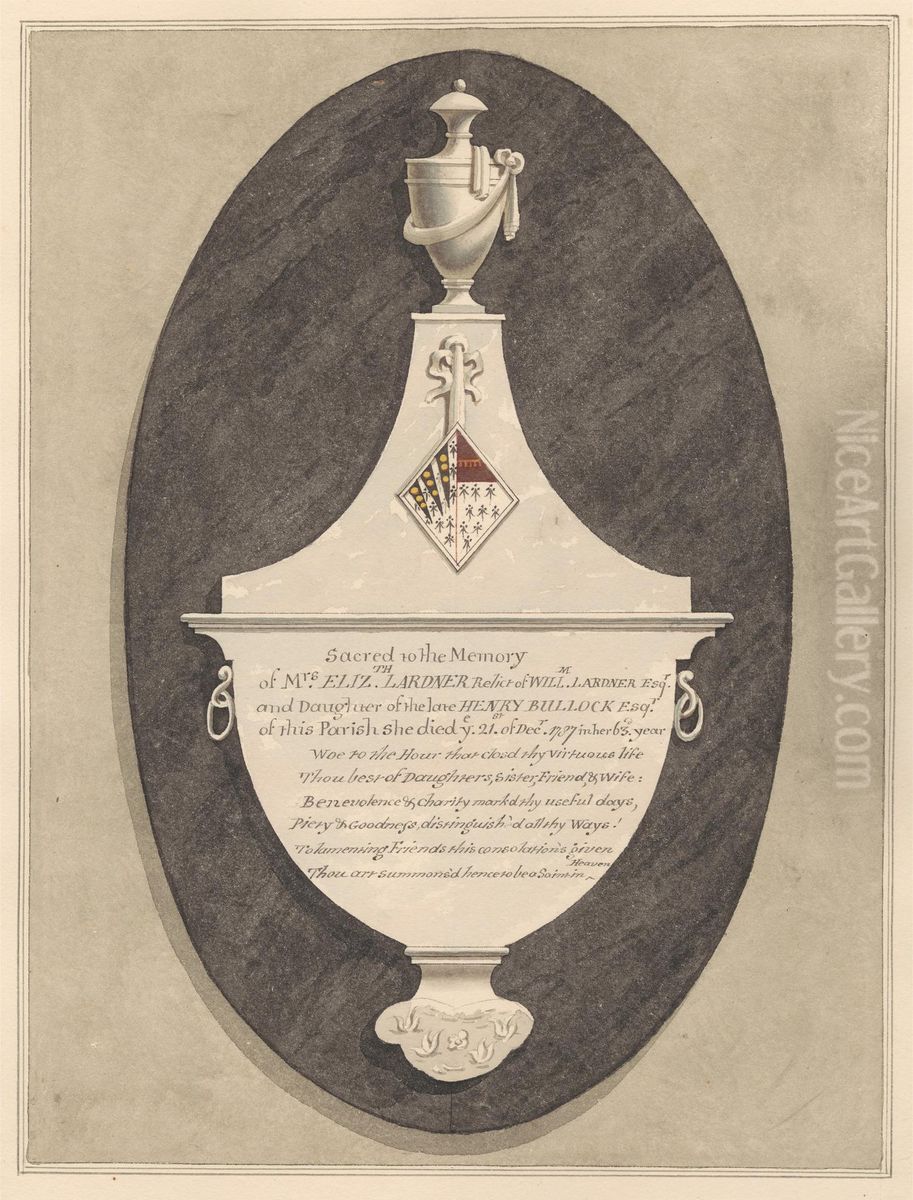 Sacred to the Memory
of Mrs. ELIZTH. LARDNER Relict of WILLM. LARDNER Esqr.
and Daughter of the late HENRY BULLOCK Esqr.
of this Parish She died ye. 21st of Decr. 1787 in her 63d. year
Woe to the Hour that clos'd thy virtuous life
Thou best of Daughters, Sister, Friend, & Wife:
Benevolence & Charity mark'd thy useful days,
Piety & Goodness, distinguish'd all thy Ways!
To lamenting Friends this consolation's given
Thou art summons'd hence to be a Saint in Heaven
NiceArtGallery.com